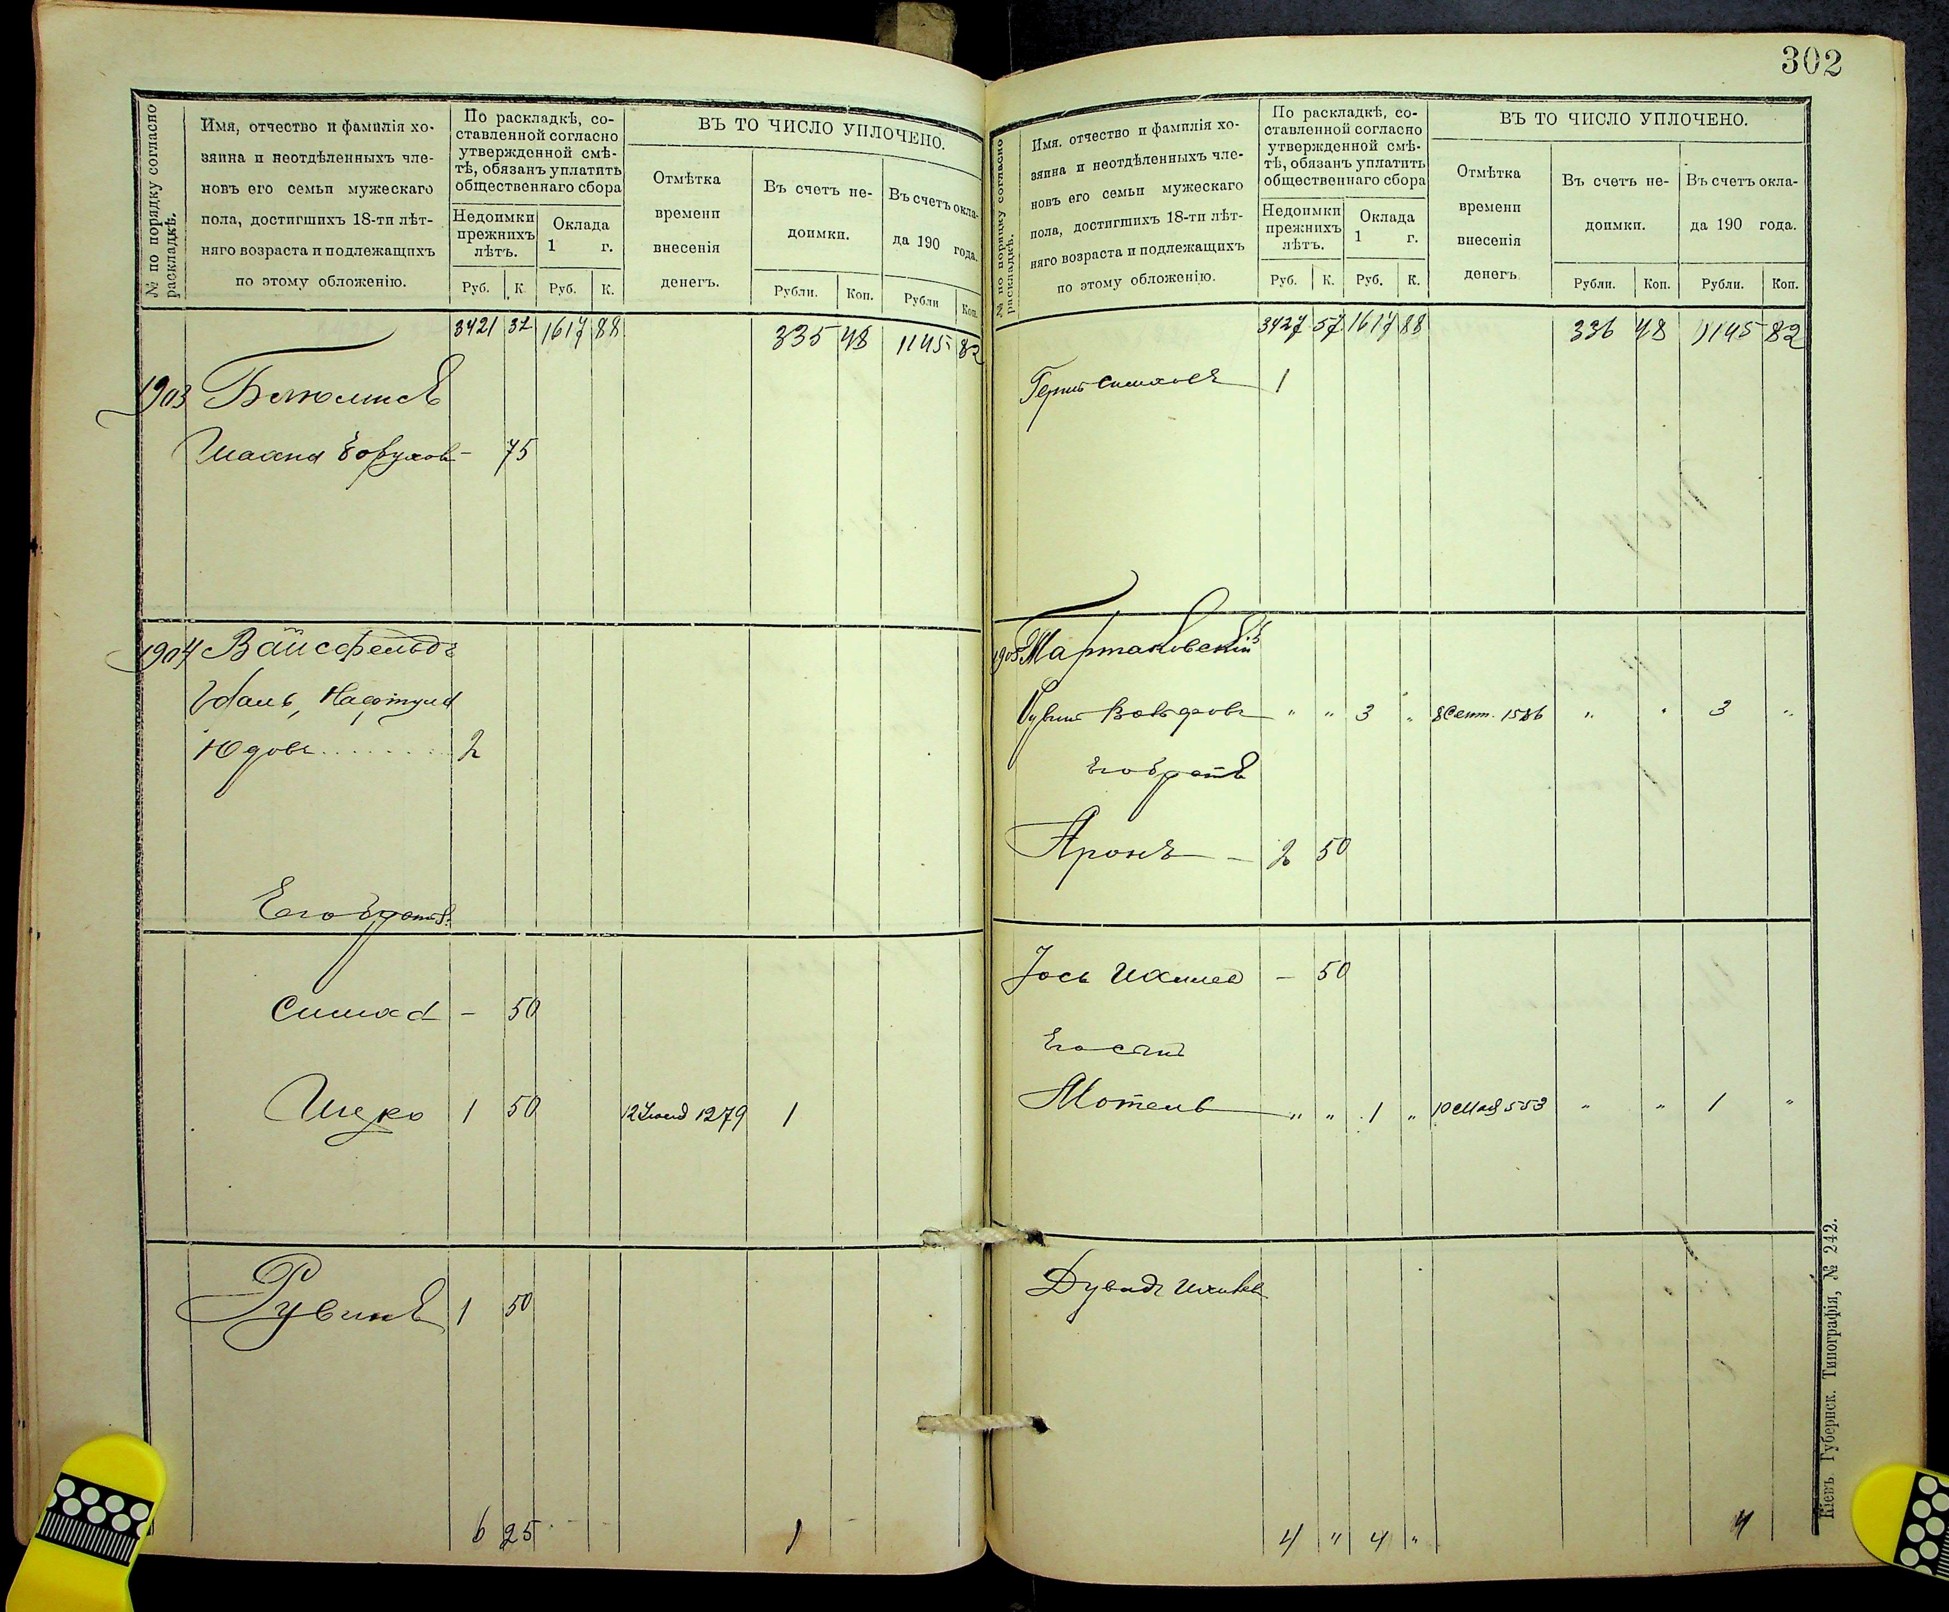 302
№ по порядку согласно раскладкѣ.
Имя, отчество и фамилія хо-
зяина и неотдѣленныхъ чле-
новъ его семьи мужескаго
пола, достигшихъ 18-ти лѣт-
няго возраста и подлежащихъ
по этому обложенію.
По раскладкѣ, со-
ставленной согласно
утвержденной смѣ-
тѣ, обязанъ уплатить
общественнаго сбора
Недоимки
прежнихъ
лѣтъ.
Оклада
1 г.
Руб. К. Руб. К.
ВЪ ТО ЧИСЛО УПЛОЧЕНО.
Отмѣтка
времени
внесенія
денегъ.
Въ счетъ не-
доимки.
Рубли. Коп.
Въ счетъ окла-
да 190 года.
Рубли Коп.
3421 32 1617 88 335 48 1145 82
1903
75
1904 Вайсфельдъ
Нафтула
Юдовъ 2
Его братъ
Симха - 50
1 50 12 1279 1
Рувинъ 1 50
6 25 1
№ по порядку согласно раскладкѣ.
Имя, отчество и фамилія хо-
зяина и неотдѣленныхъ чле-
новъ его семьи мужескаго
пола, достигшихъ 18-ти лѣт-
няго возраста и подлежащихъ
по этому обложенію.
По раскладкѣ, со-
ставленной согласно
утвержденной смѣ-
тѣ, обязанъ уплатить
общественнаго сбора
Недоимки
прежнихъ
лѣтъ.
Оклада
1 г.
Руб. К. Руб. К.
ВЪ ТО ЧИСЛО УПЛОЧЕНО.
Отмѣтка
времени
внесенія
денегъ.
Въ счетъ не-
доимки.
Рубли. Коп.
Въ счетъ окла-
да 190 года.
Рубли. Коп.
3427 57 1617 88 336 48 1145 82
Герш Симховъ 1
1905 Тартаковскій
Рувин " " 3 " 8 Сент. 1586 " " 3 "
Его братъ
Аронъ - 2 50
Іось - 50
Его сынъ
Мотель " " 1 " 10 Мая 553 " " 1 "
Дувидъ
4 " 4 " 4
Кіевъ. Губернск. Типографія, № 242.